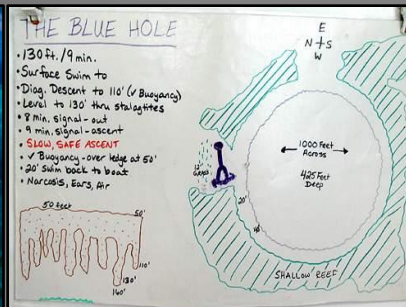 THE BLUE HOLE
• 130 ft./9 min.
• Surface Swim to
• Diag. Descent to 110' (✓ Buoyancy)
• Level to 130' thru stalagtites
• 8 min. signal - out
• 9 min. signal - ascent
• SLOW, SAFE ASCENT
• ✓ Buoyancy - over ledge at 50'
• 20' Swim back to boat
• Narcosis, Ears, Air
50 feet
50'
110'
130'
160'
E
N + S
W
1000 Feet
Across
425 Feet
Deep
20'
SHALLOW REEF